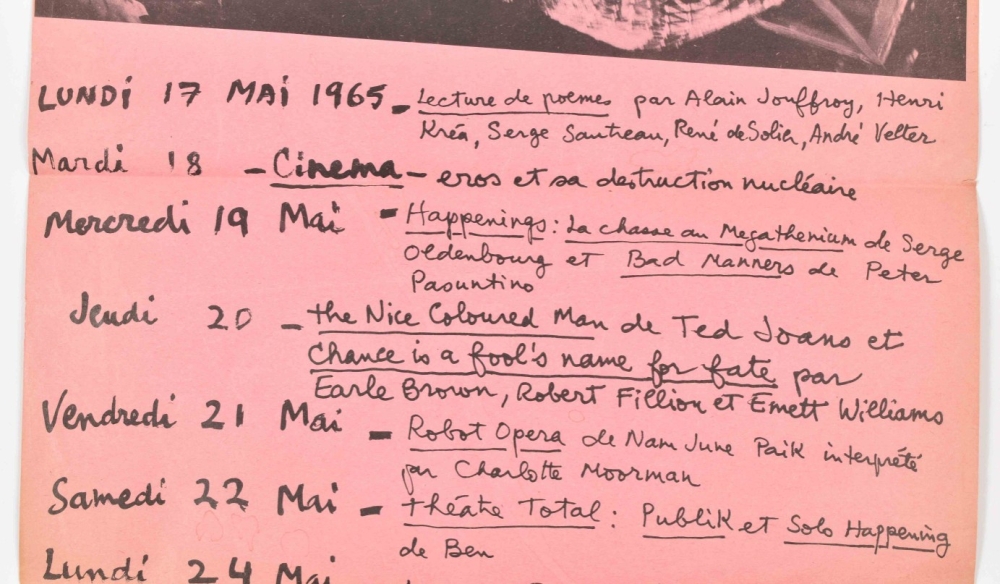 LUNDi 17 MAi 1965 - Lecture de poemes par Alain Jouffroy, Henri
Kréa, Serge Sautreau, René de Solier, André Velter
Mardi 18 - Cinema - eros et sa destruction nucléaire
Mercredi 19 Mai - Happenings: La chasse au Megathenium de Serge
Oldenbourg et Bad Manners de Peter
Pasuntino
Jeudi 20 - the Nice Coloured Man de Ted Joans et
Chance is a fool's name for fate par
Earle Brown, Robert Fillion et Emett Williams
Vendredi 21 Mai - Robot Opera de Nam June Paik interprété
par Charlotte Moorman
Samedi 22 Mai - théâtre Total: Publik et Solo Happening
de Ben
Lundi 24 Mai